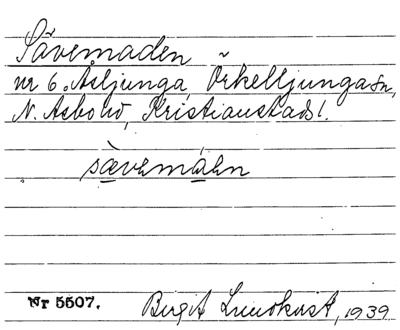 Sävemaden
nr 6. Åsljunga, Örkelljunga sn,
N. Åsbo hd, Kristianstads l.
sævemáen
Nr 5507. Birgit Lundkvist, 1939